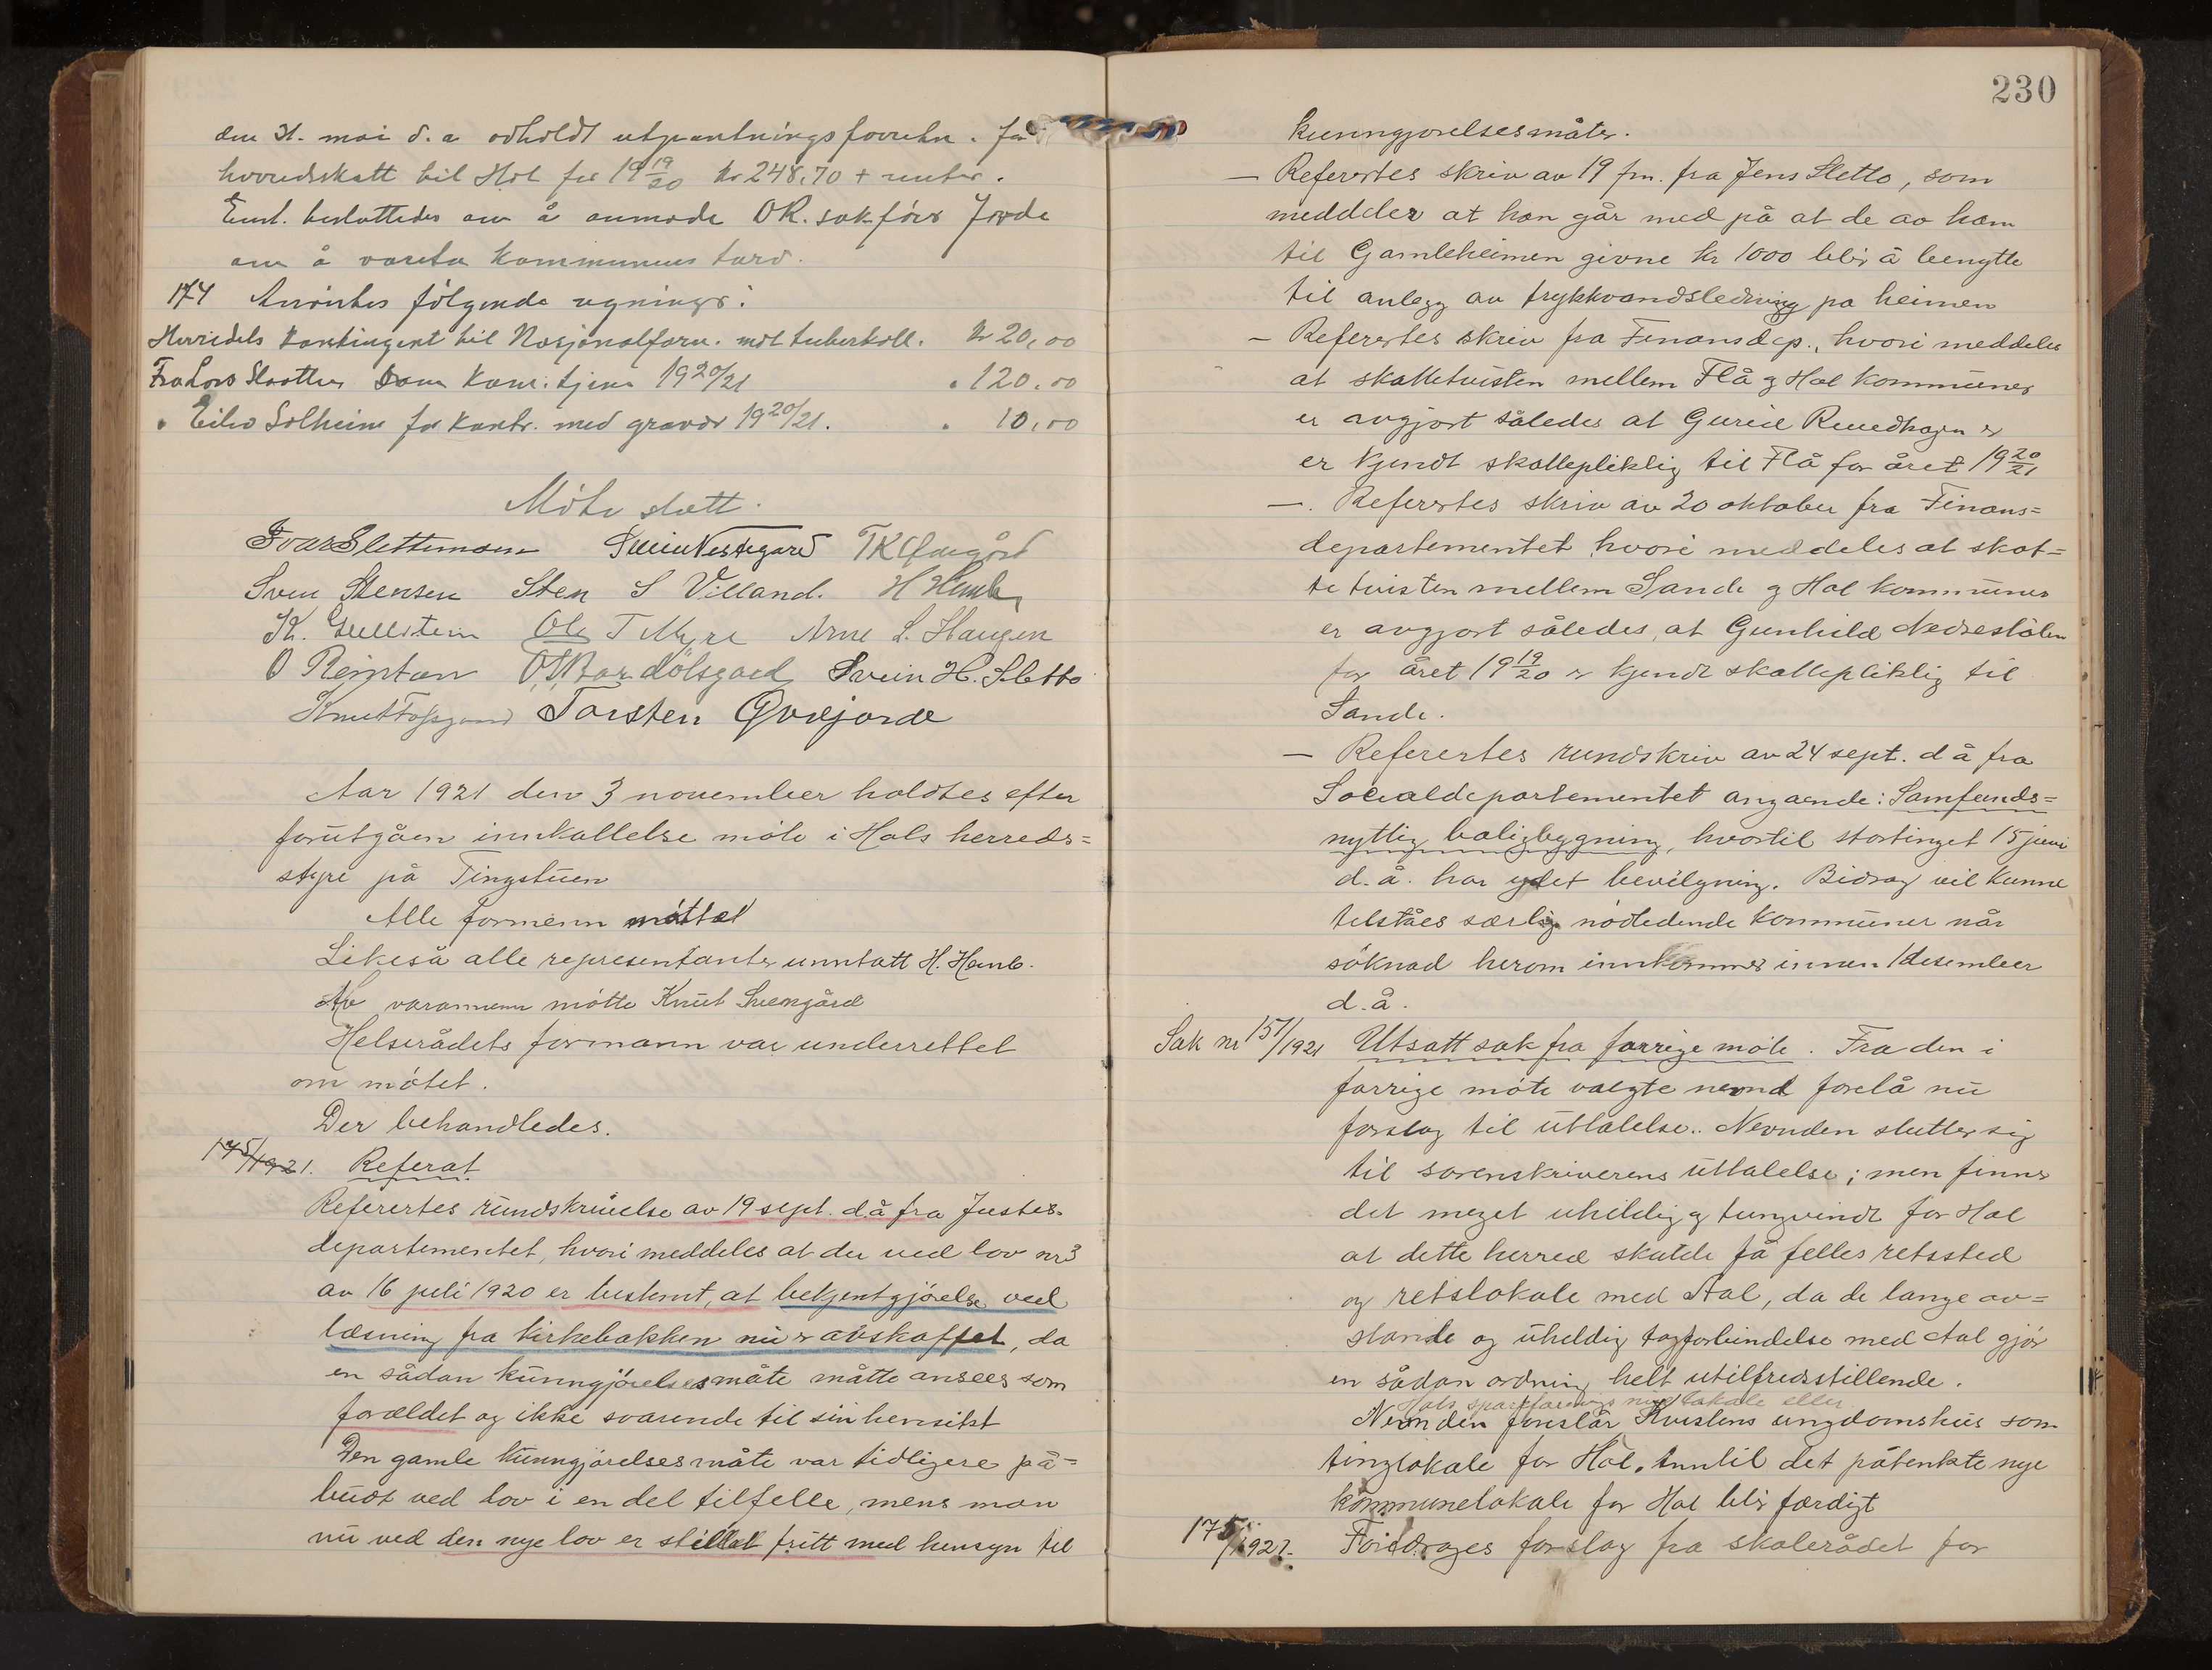 den 31. mai d. a avholdt utpantningsforretn. for
hovedskatt til Hol for 19 19/20 kr 248,70 + renter.
Enst. besluttedes av å anmode O.R. sakfører Jorde
om å vareta kommunens tarv.
174 Anvistes følgende regninger:
Herredets kontingent til Nasjonalforn. mot tuberkoll. Kr 20,00
Fra Lars Slaatten som kom: tjener 19 20/21 " 120.00
" Eiliv Solheim for kontr. med graver 19 20/21. " 10,00
Möte slutt.
Ivar Slettemoen Svein Vestegard TK
Sven Stensen Sten S Villand. H Hemb
K. Gullstein Ole T Myre Arne L. Haugen
O Reinton O Bardölsgard Svein H. Sletto
Knut Fossgard Torsten Qvejorde
Aar 1921 den 3 november holdtes efter
forutgåen innkallelse möte i Hols herreds=
styre på Tingstuen
Alle formenn möttet
Likeså alle representanter unntatt H. Hemb.
Av varamenn mötte Knut Sveengård
Helserådets formann var underrettet
om mötet.
Der behandledes.
175/1921. Referat
Referertes rundskrivelse av 19 sept. då fra Justis-
departementet, hvori meddeles at der ved lov nr 3
av 16 juli 1920 er bestemt, at bekjentgjörelse ved
læsning fra kirkebakken nu er avskaffet, da
en sådan kunngjörelsesmåte måtte ansees som
foreldet og ikke svarende til sin hensikt
Den gamle kunngjörelsesmåte var tidligere på=
budt ved lov i en del tilfelle, mens man
nu ved den nye lov er stillet fritt med hensyn til
230
kunngjorelsesmåter.
— Referertes skriv av 19 fm. fra Jens Sletto, som
meddeler at han går med på at de av ham
til Gamleheimen givne kr 1000 blir å benytte
til anlegg av trykkvandsledning pa heimen
— Referertes skriv fra Finansdep., hvori meddeles
at skattetvisten mellem Flå og Hol kommuner
er avgjort således at Gurid Ruudhagen er
er kjendt skattepliktig til Flå for året 19 20/21
—. Referertes skriv av 20 oktober fra Finans=
departementet hvori meddeles at skat=
te tvisten mellem Sande og Hol kommuner
er avgjort således, at Gunhild Nedrestölen
for året 19 19/20 er kjendt skattepliktig til
Sande.
— Referertes rundskriv av 24 sept. d å fra
Socialdepartementet angaende: Samfunds=
nyttig boligbygning, hvortil stortinget 15 juni
d.å. har ydet bevilgning. Bidrag vil kunne
tilståes særlig nödledende kommuner når
söknad herom innkommer innen 1 desember
d.å.
Sak nr 151/1921 Utsatt sak fra forrige möte. Fra den i
forrige möte valgte nevnd forelå nu
forslag til uttalelse.. Nevnden slutter sig
til sorenskriverens uttalelse; men finner
det meget uheldig og tungvindt for Hol
at dette herred skulde få felles retssted
og retslokale med Aal, da de lange av=
stande og uheldig togforbindelse med Aal gjör
en sådan ordning helt utilfredsstillende.
Hols sparforenings nye lokale eller
Nevnden foreslår Kvislens ungdomshus som
tinglokale for Hol, inntil det påtenkte nye
kommunelokale for Hol blir færdigt
175/1921. Foredroges forslag fra skolerådet for